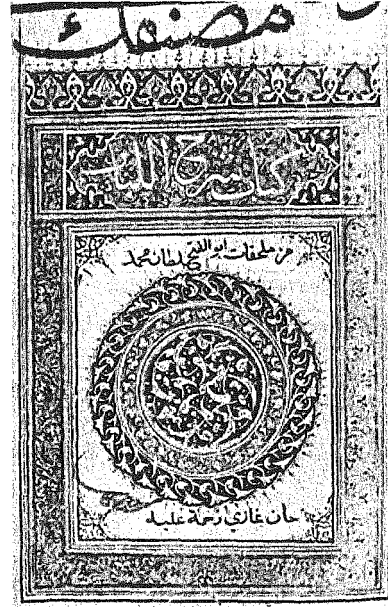 مصنفك
كتاب شرح اللباب
من ملحقات ابو الفتح سلطان محمد
خان غازي رحمة عليه